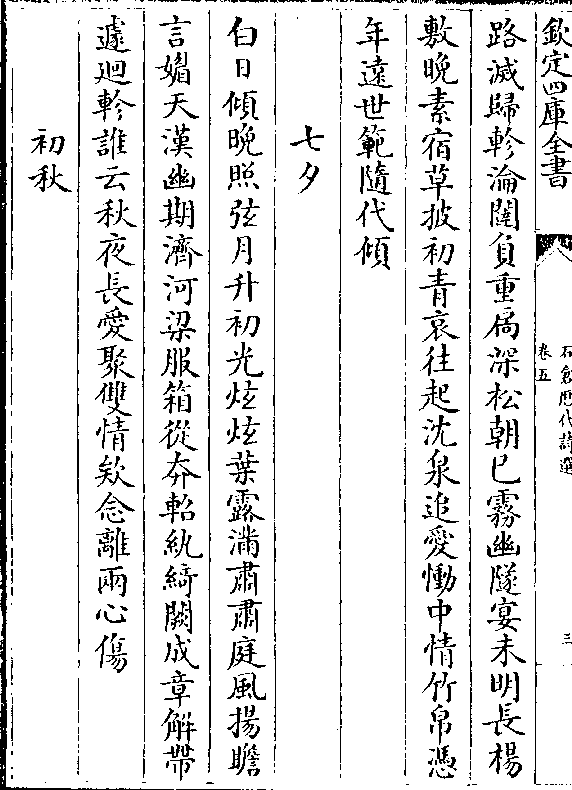 欽定四庫全書
石倉歷代詩選
卷五
三
路滅歸軫淪闉負重扃深松朝已霧幽隧宴未明長楊
敷晚素宿草披初青哀往起沈泉追愛慟中情竹帛憑
年遠世範隨代傾
七夕
白日傾晚照弦月升初光炫炫葉露滿肅肅庭風揚瞻
言媚天漢幽期濟河梁服箱從奔軺紈綺闕成章解帶
遽廻軫誰云秋夜長愛聚雙情欵念離兩心傷
初秋